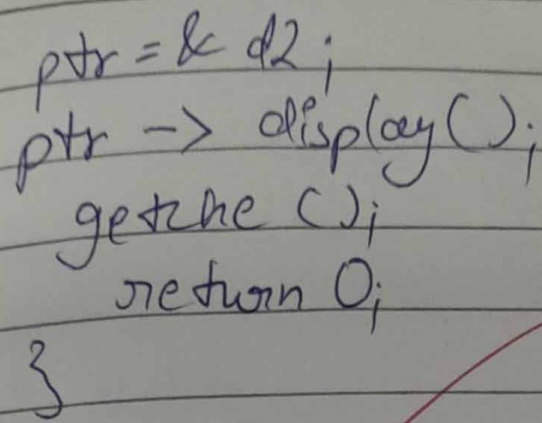 ptr = & d2;
ptr -> display();
getche ();
return 0;
}